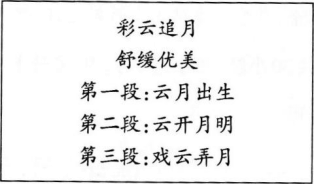 彩云追月
舒缓优美
第一段:云月出生
第二段:云开月明
第三段:戏云弄月